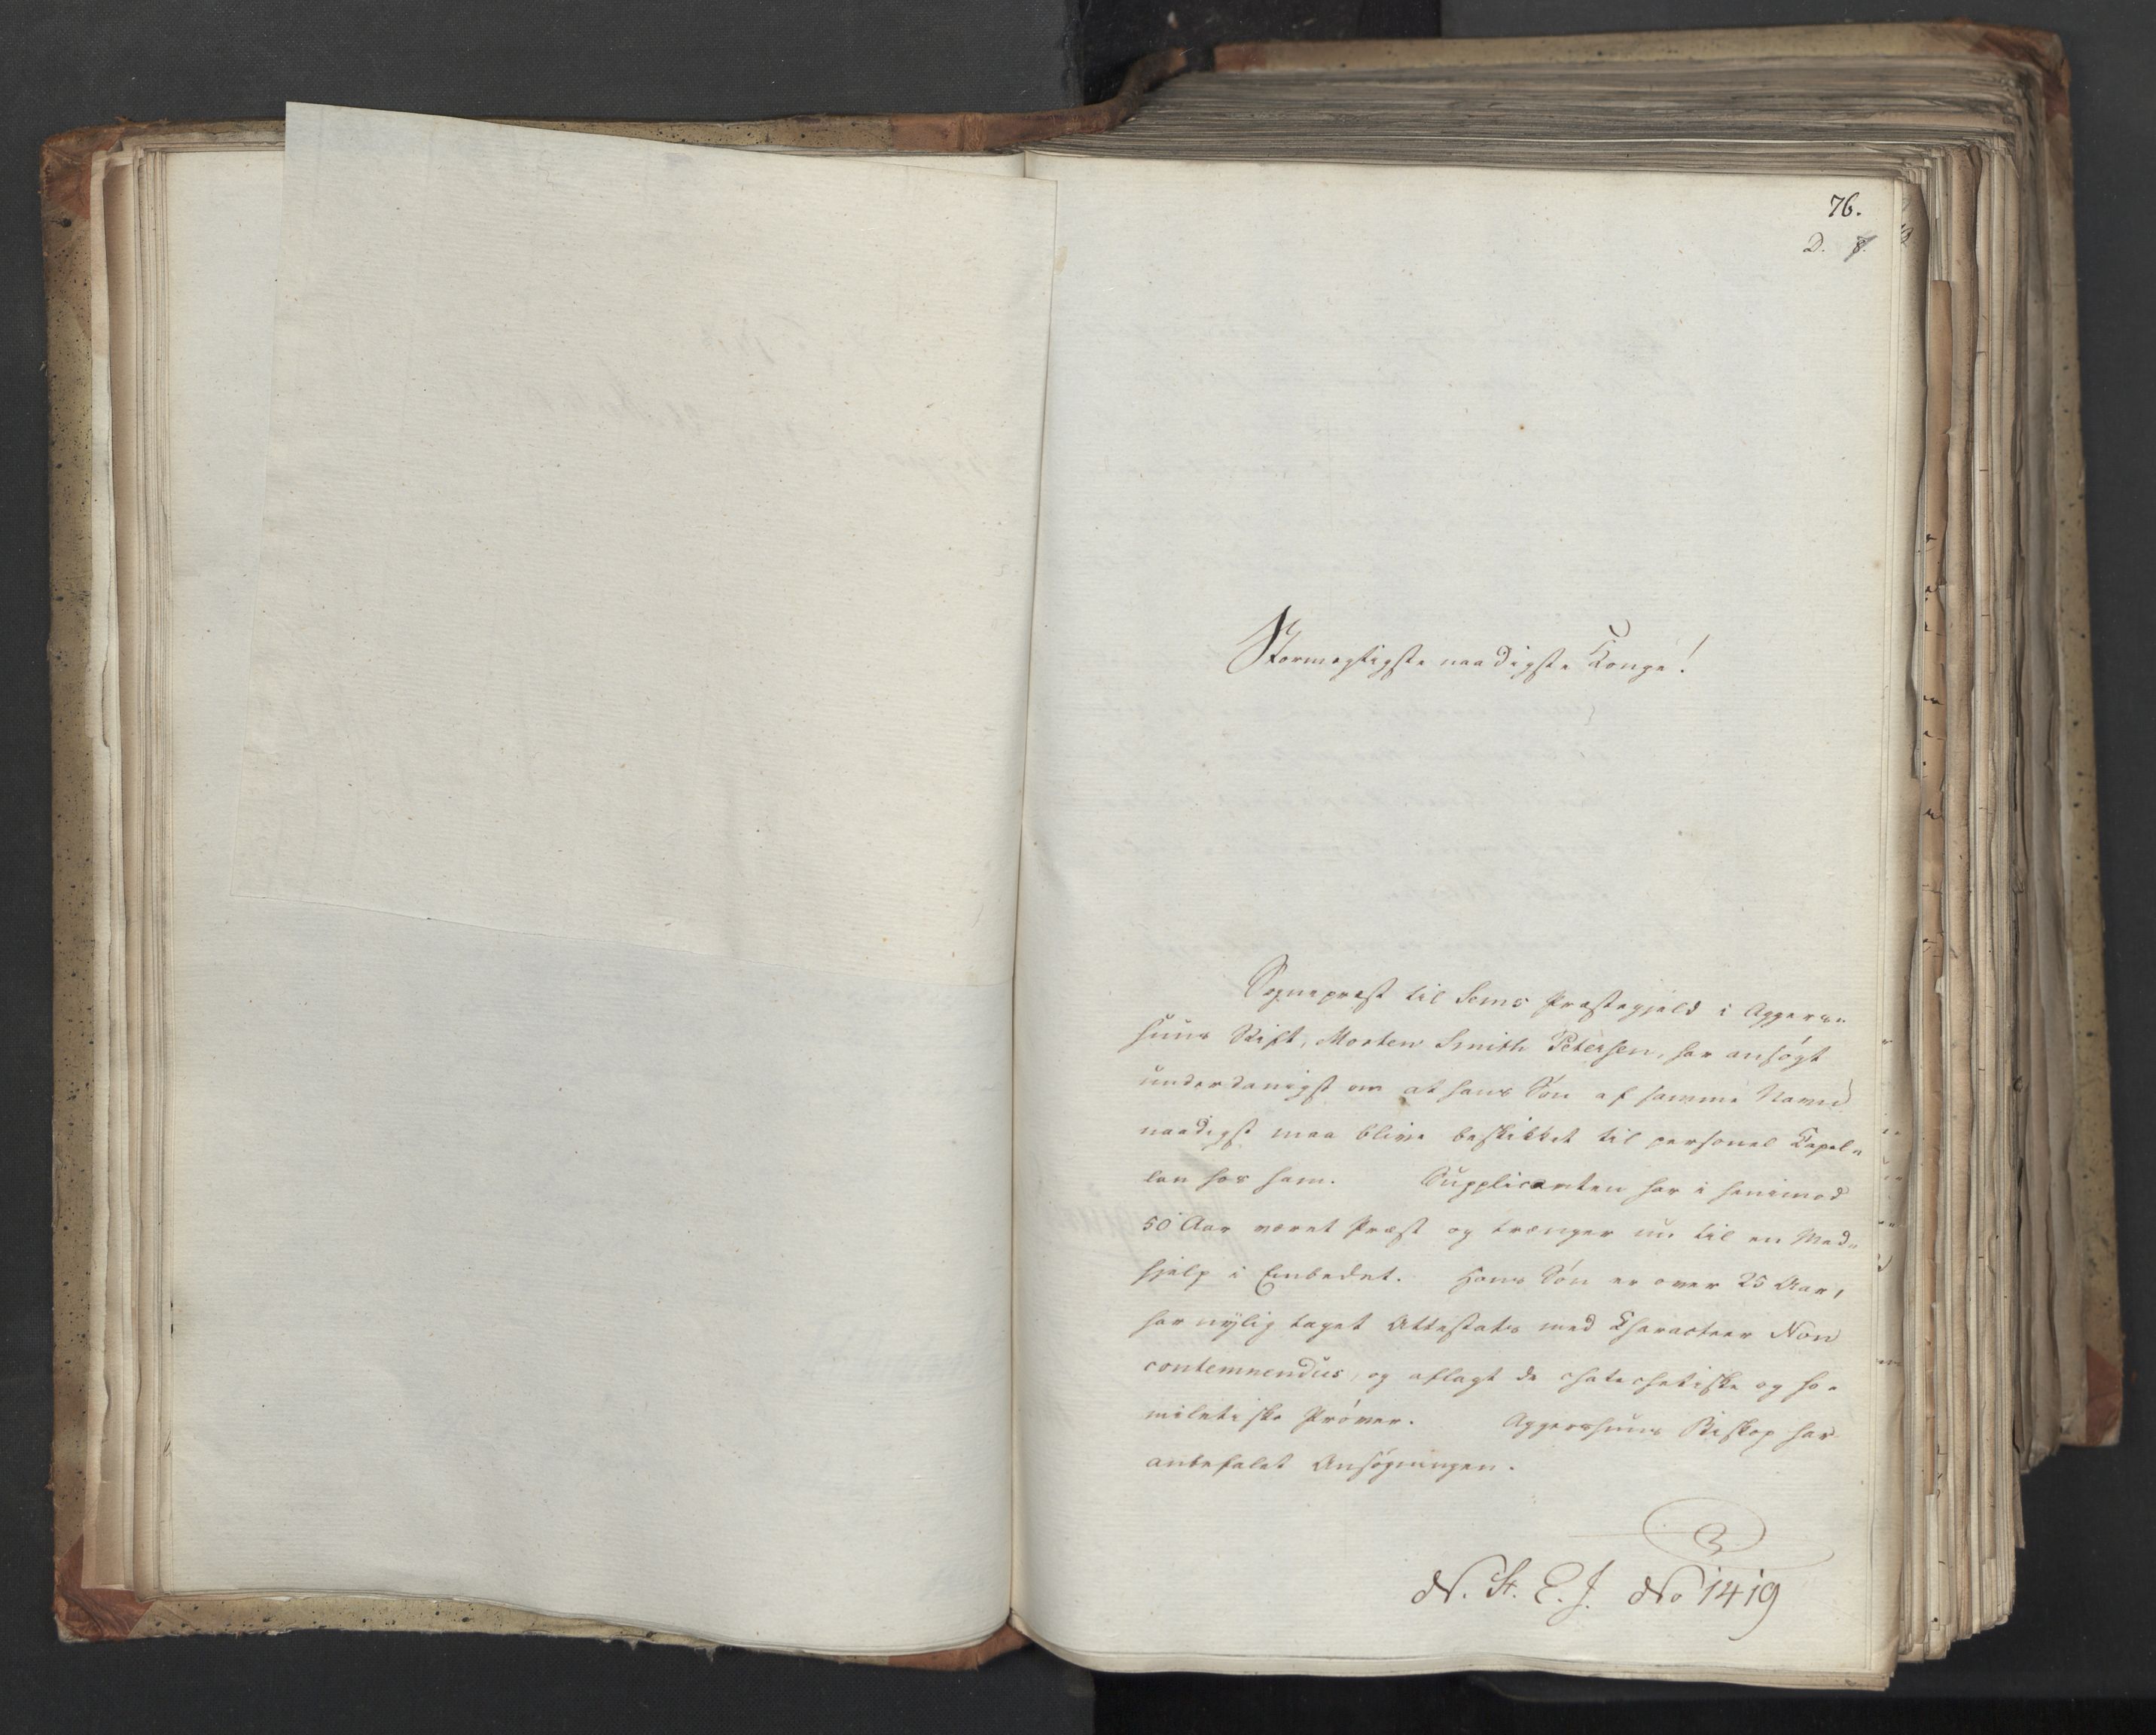 76.
D. 8.
Stormægtigste naadigste Konge!
Sognepræst til Sems Præstegjeld i Aggers„
huus Stift, Morten Smith Petersen, har ansøgt
underdanigst om at hans Søn af samme Navn
naadigst maa blive beskikket til personel Capel„
lan hos ham. Supplicanten har i henimod
50 Aar været Præst og trænger nu til en Med„
hjelp i Embedet. Hans Søn er over 25 Aar,
har nÿlig taget Attestats med Characteer Non
contemnendus, og aflagt de chatechetiske og ho„
miletiske Prøver. Aggershuus Biskop har
anbefalet Ansøgningen.
N. St. E. J. No 1419